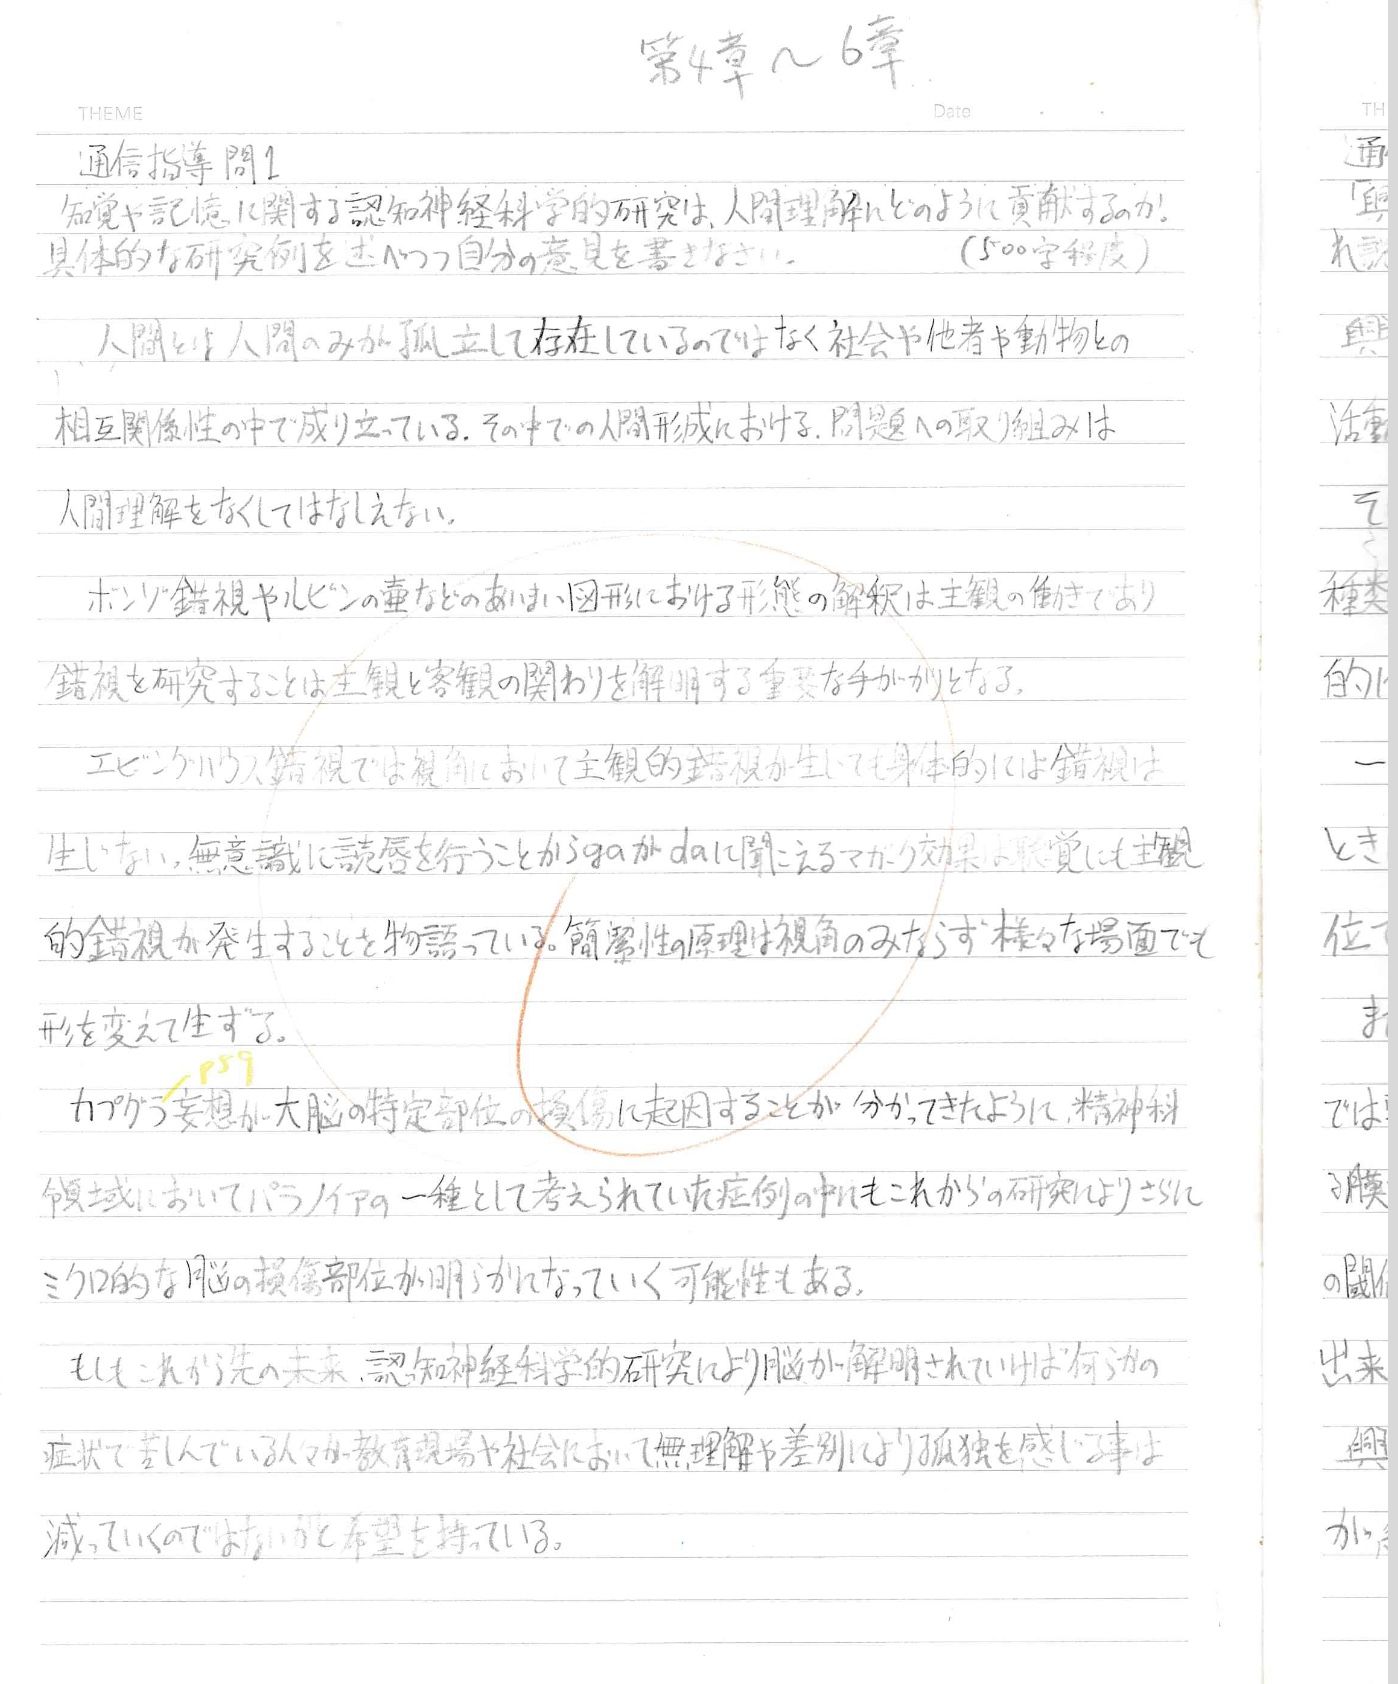 第4章～6章
THEME
Date
通信指導 問1
知覚や記憶に関する認知神経科学的研究は、人間理解にどのように貢献するのか。
具体的な研究例を述べつつ自分の意見を書きなさい。 (500字程度)
人間とは人間のみが孤立して存在しているのではなく社会や他者や動物との
相互関係性の中で成り立っている。その中での人間形成における、問題への取り組みは
人間理解をなくしてはなしえない。
ポンゾ錯視やルビンの壷などのあいまい図形における形態の解釈は主観の働きであり
錯視を研究することは主観と客観の関わりを解明する重要な手がかりとなる。
エビングハウス錯視では視角において主観的錯視が生じても身体的には錯視は
生じない。無意識に読唇を行うことからgaがdaに聞こえるマガーク効果は聴覚にも主観
的錯視が発生することを物語っている。簡潔性の原理は視角のみならず様々な場面でも
形を変えて生ずる。
P59
カプグラ妄想が大脳の特定部位の損傷に起因することが分かってきたように、精神科
領域においてパラノイアの一種として考えられていた症例の中にもこれからの研究によりさらに
ミクロ的な脳の損傷部位が明らかになっていく可能性もある。
もしもこれから先の未来、認知神経科学的研究により脳が解明されていけば何らかの
症状で苦しんでいる人々が教育現場や社会において無理解や差別により孤独を感じる事は
減っていくのではないかと希望を持っている。
TH
通
れ
興
活動
そ
種類
的に
一
とき
位で
では
る膜
の関
出来
興
が